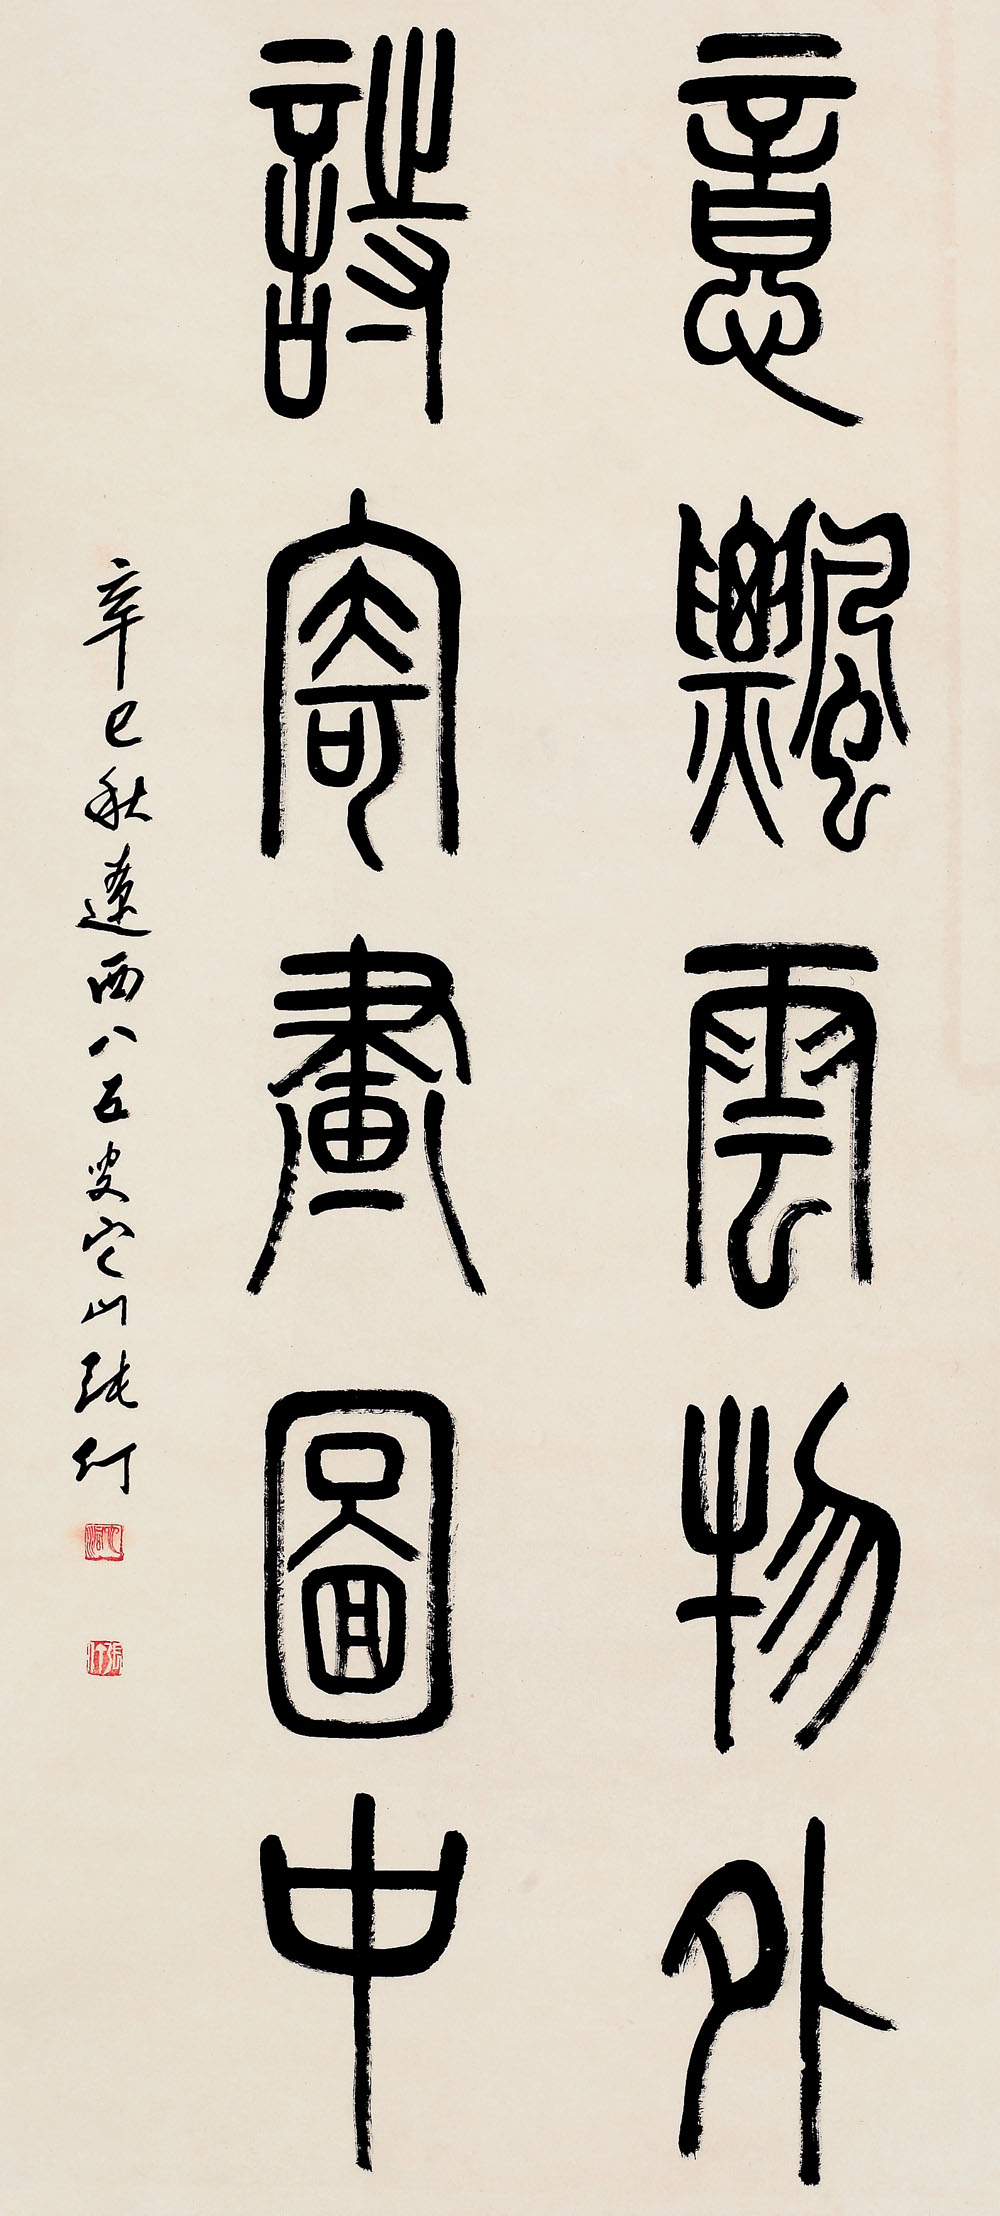 意飄雲物外
詩寄畫圖中
辛巳秋遼西八五叟它山張仃
張仃